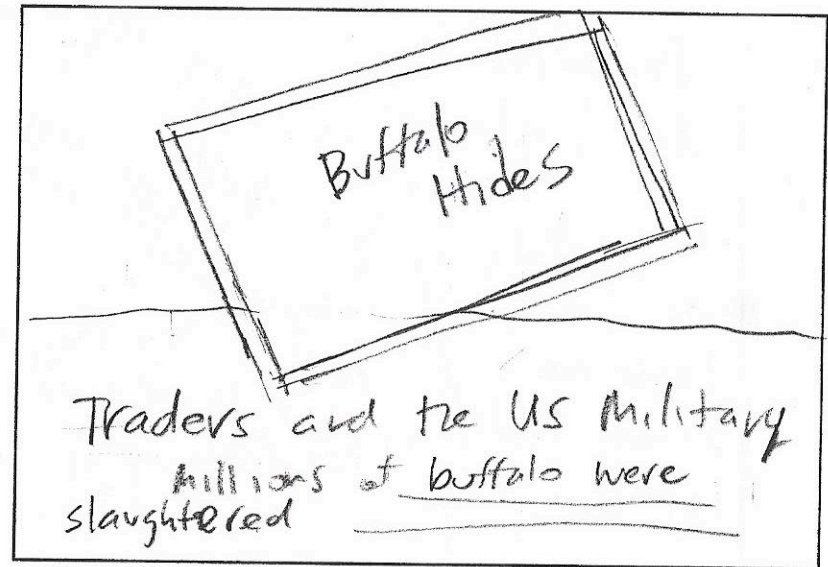 Buffalo
Hides
Traders and the US Military
Millions of buffalo were
slaughtered